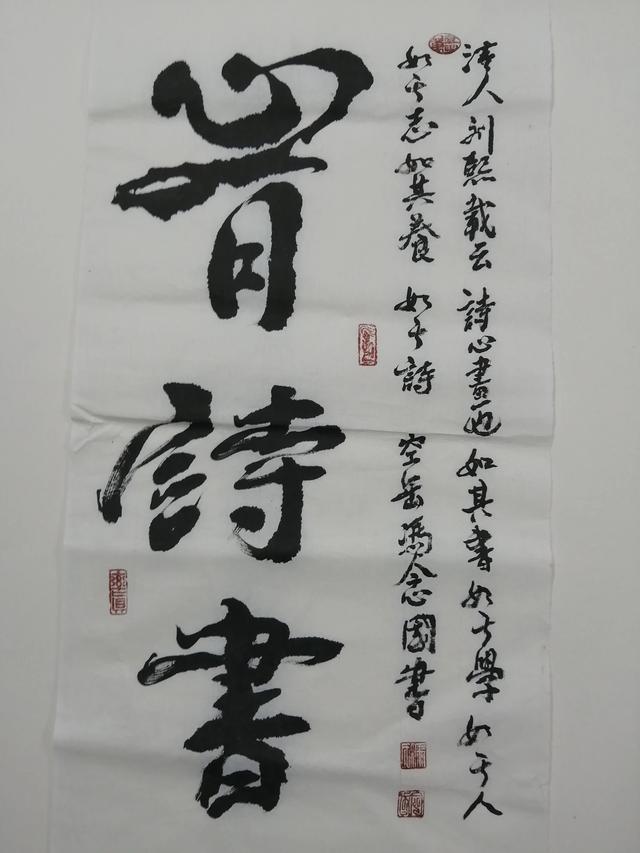 清人刘熙載云 詩心畫也 如其書如其學 如其人
如其志如其養 如其詩 空岳馮念國書
旹詩書